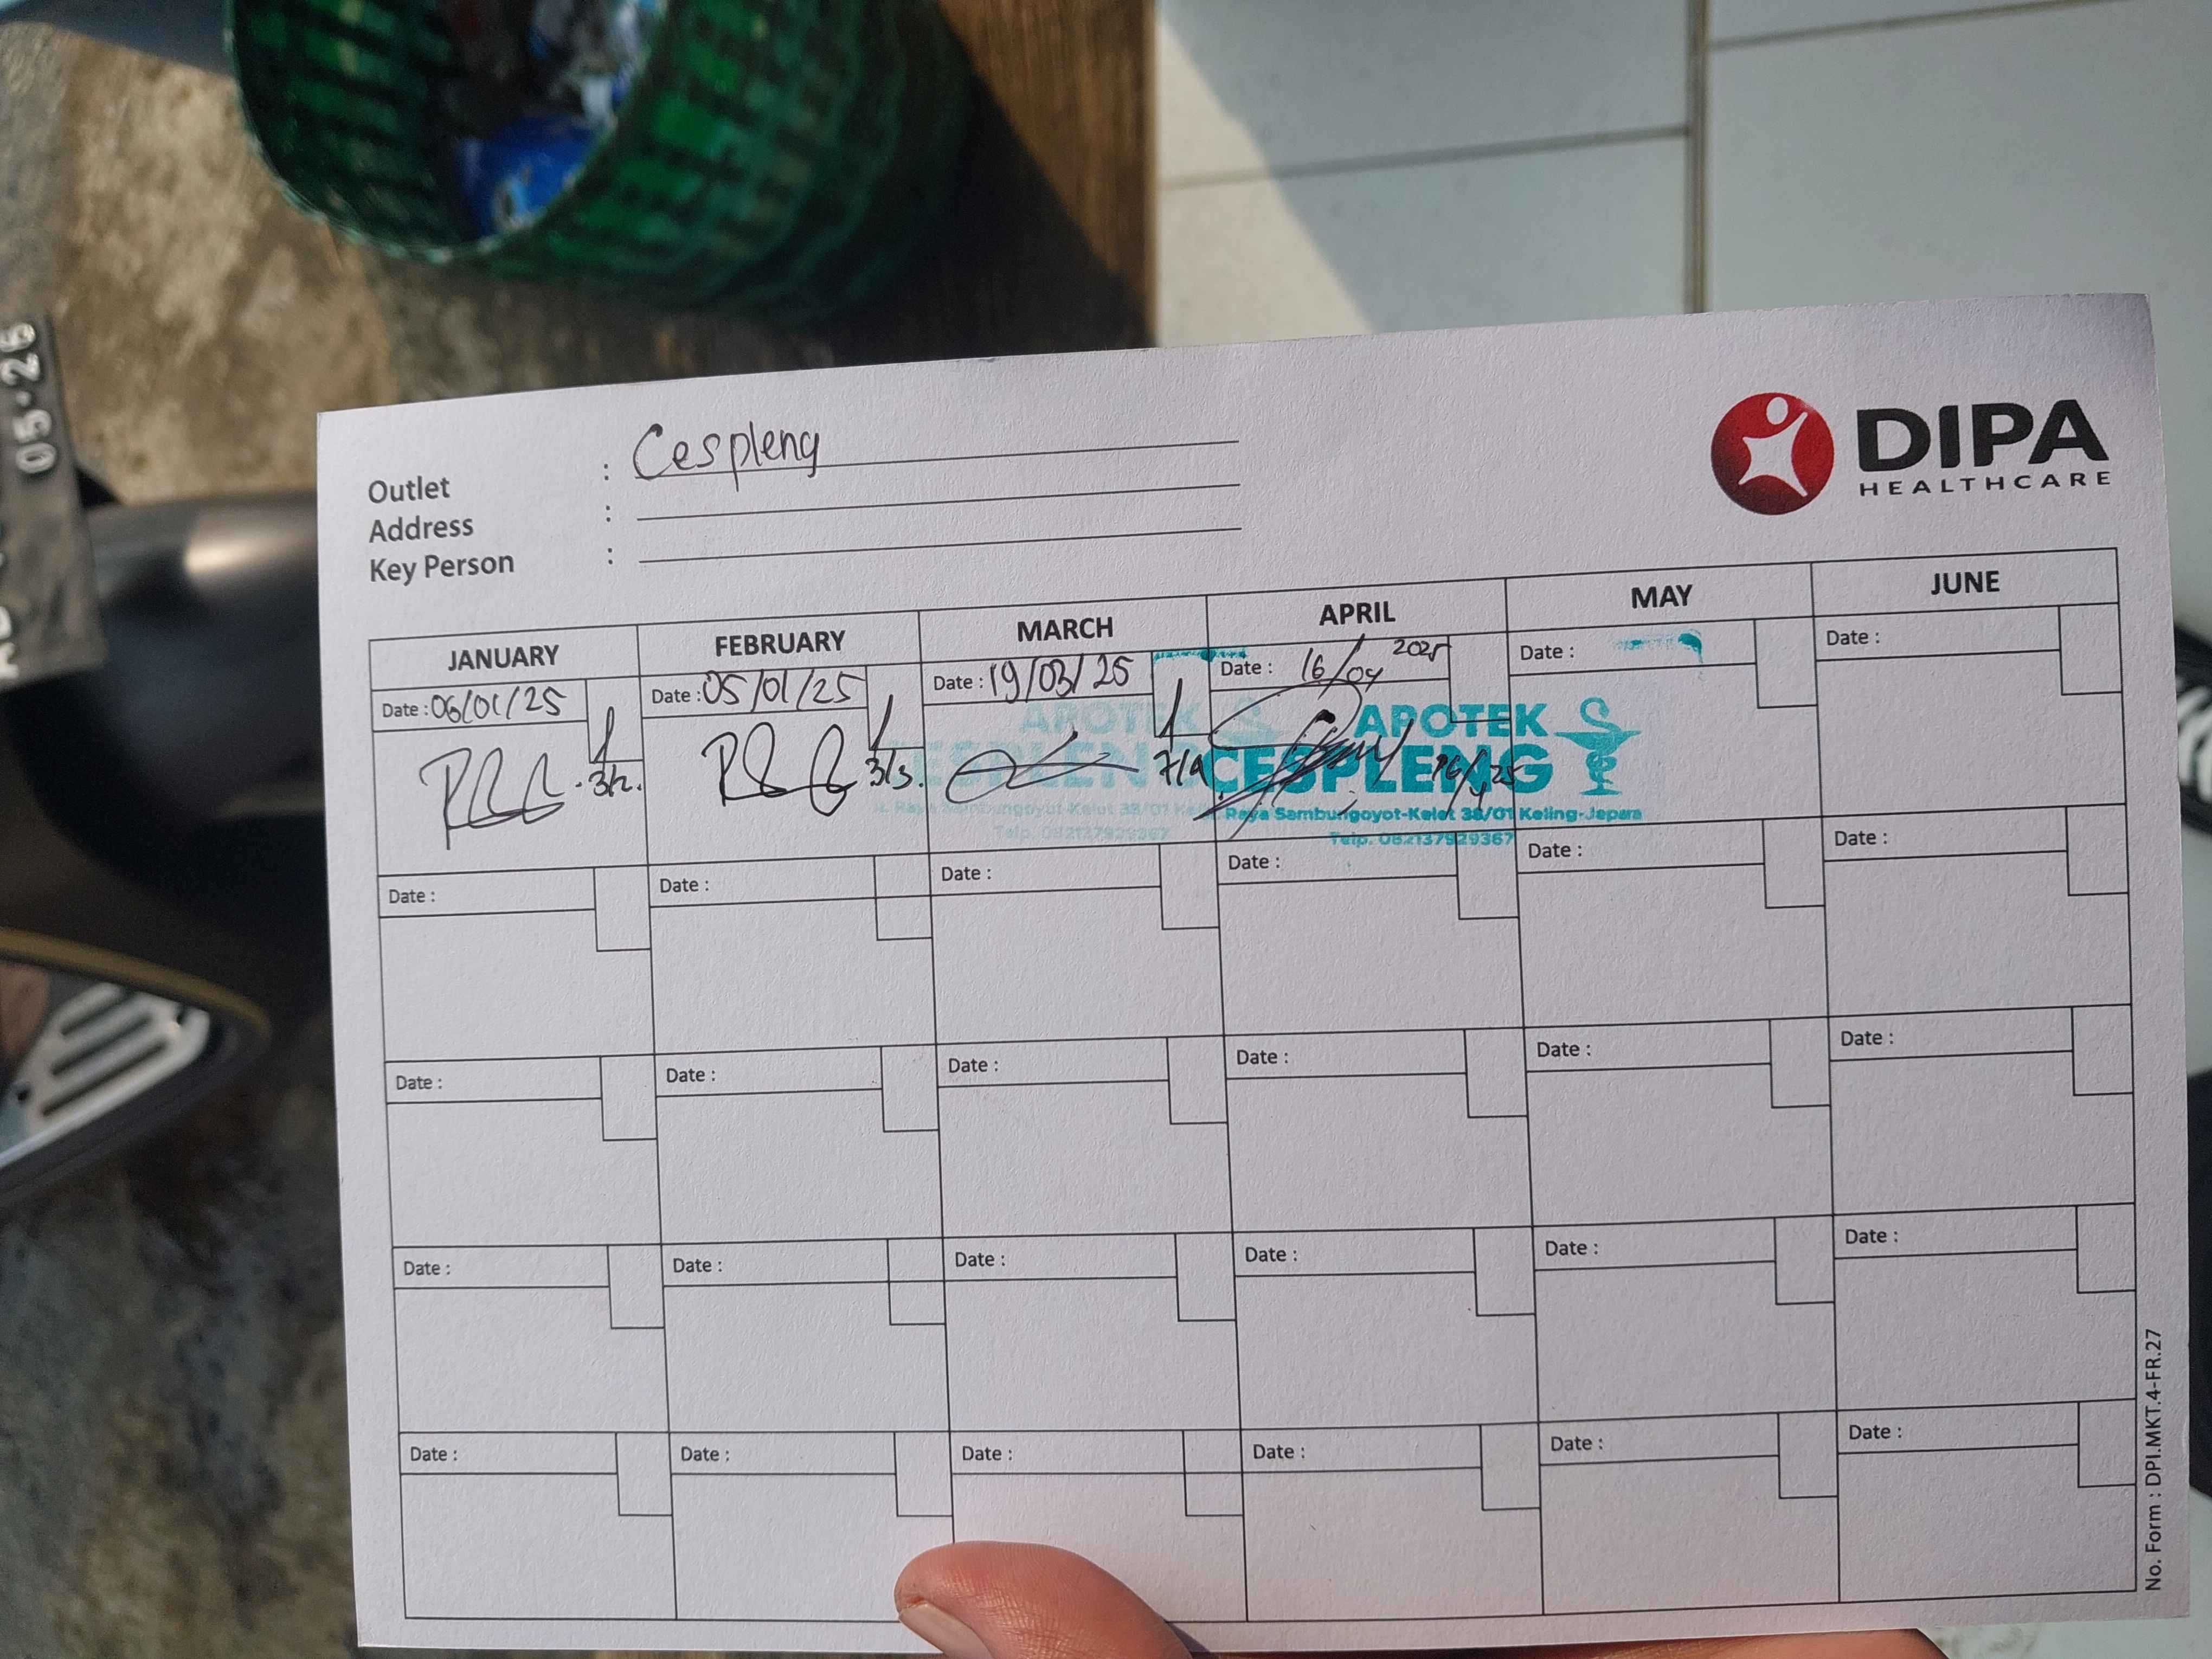 05·26
DIPA
HEALTHCARE
Outlet : Cespleng
Address :
Key Person :
JANUARY FEBRUARY MARCH APRIL MAY JUNE
Date : 06/01/25 Date : 05/01/25 Date : 19/03/25 Date : 16/04 2025 Date : Date :
3/2. 3/3. 7/4
APOTEK
CESPLENG
Raya Sambungoyot-Kelet 38/01 Keling-Jepara
Telp. 082137929367
APOTEK
CESPLENG
Raya Sambungoyot-Kelet 38/01
Telp. 082137929367
Date : Date : Date : Date : Date : Date :
Date : Date : Date : Date : Date : Date :
Date : Date : Date : Date : Date : Date :
Date : Date : Date : Date : Date : Date :
No. Form : DPI.MKT.4-FR.27